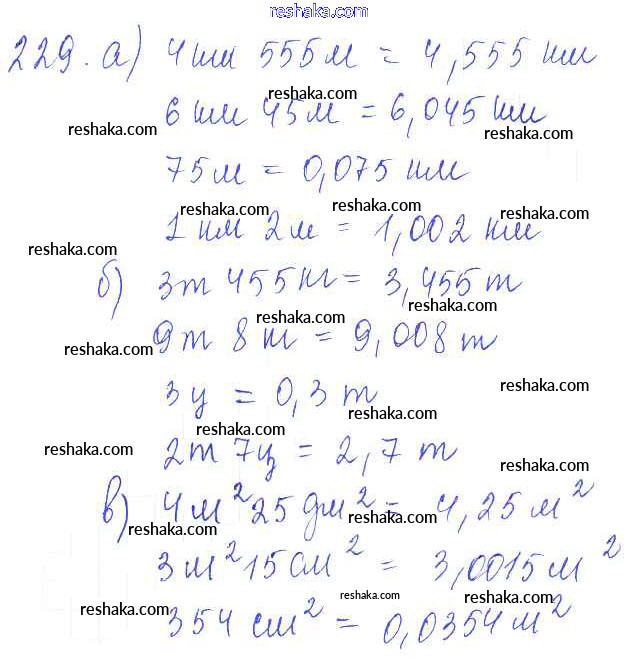 reshaka.com
229. а) 4 км 555 м = 4,555 км
reshaka.com
6 км 45 м = 6,045 км
reshaka.com reshaka.com
75 м = 0,075 км
reshaka.com reshaka.com reshaka.com
1 км 2 м = 1,002 км
reshaka.com
б) 3 т 455 кг = 3,455 т
reshaka.com reshaka.com
9 т 8 кг = 9,008 т
reshaka.com reshaka.com
3 ц = 0,3 т
reshaka.com reshaka.com
reshaka.com reshaka.com
2 т 7 ц = 2,7 т
reshaka.com
в) 4 м² 25 дм² = 4,25 м²
reshaka.com reshaka.com
3 м² 15 см² = 3,0015 м²
reshaka.com reshaka.com reshaka.com
354 см² = 0,0354 м²
reshaka.com